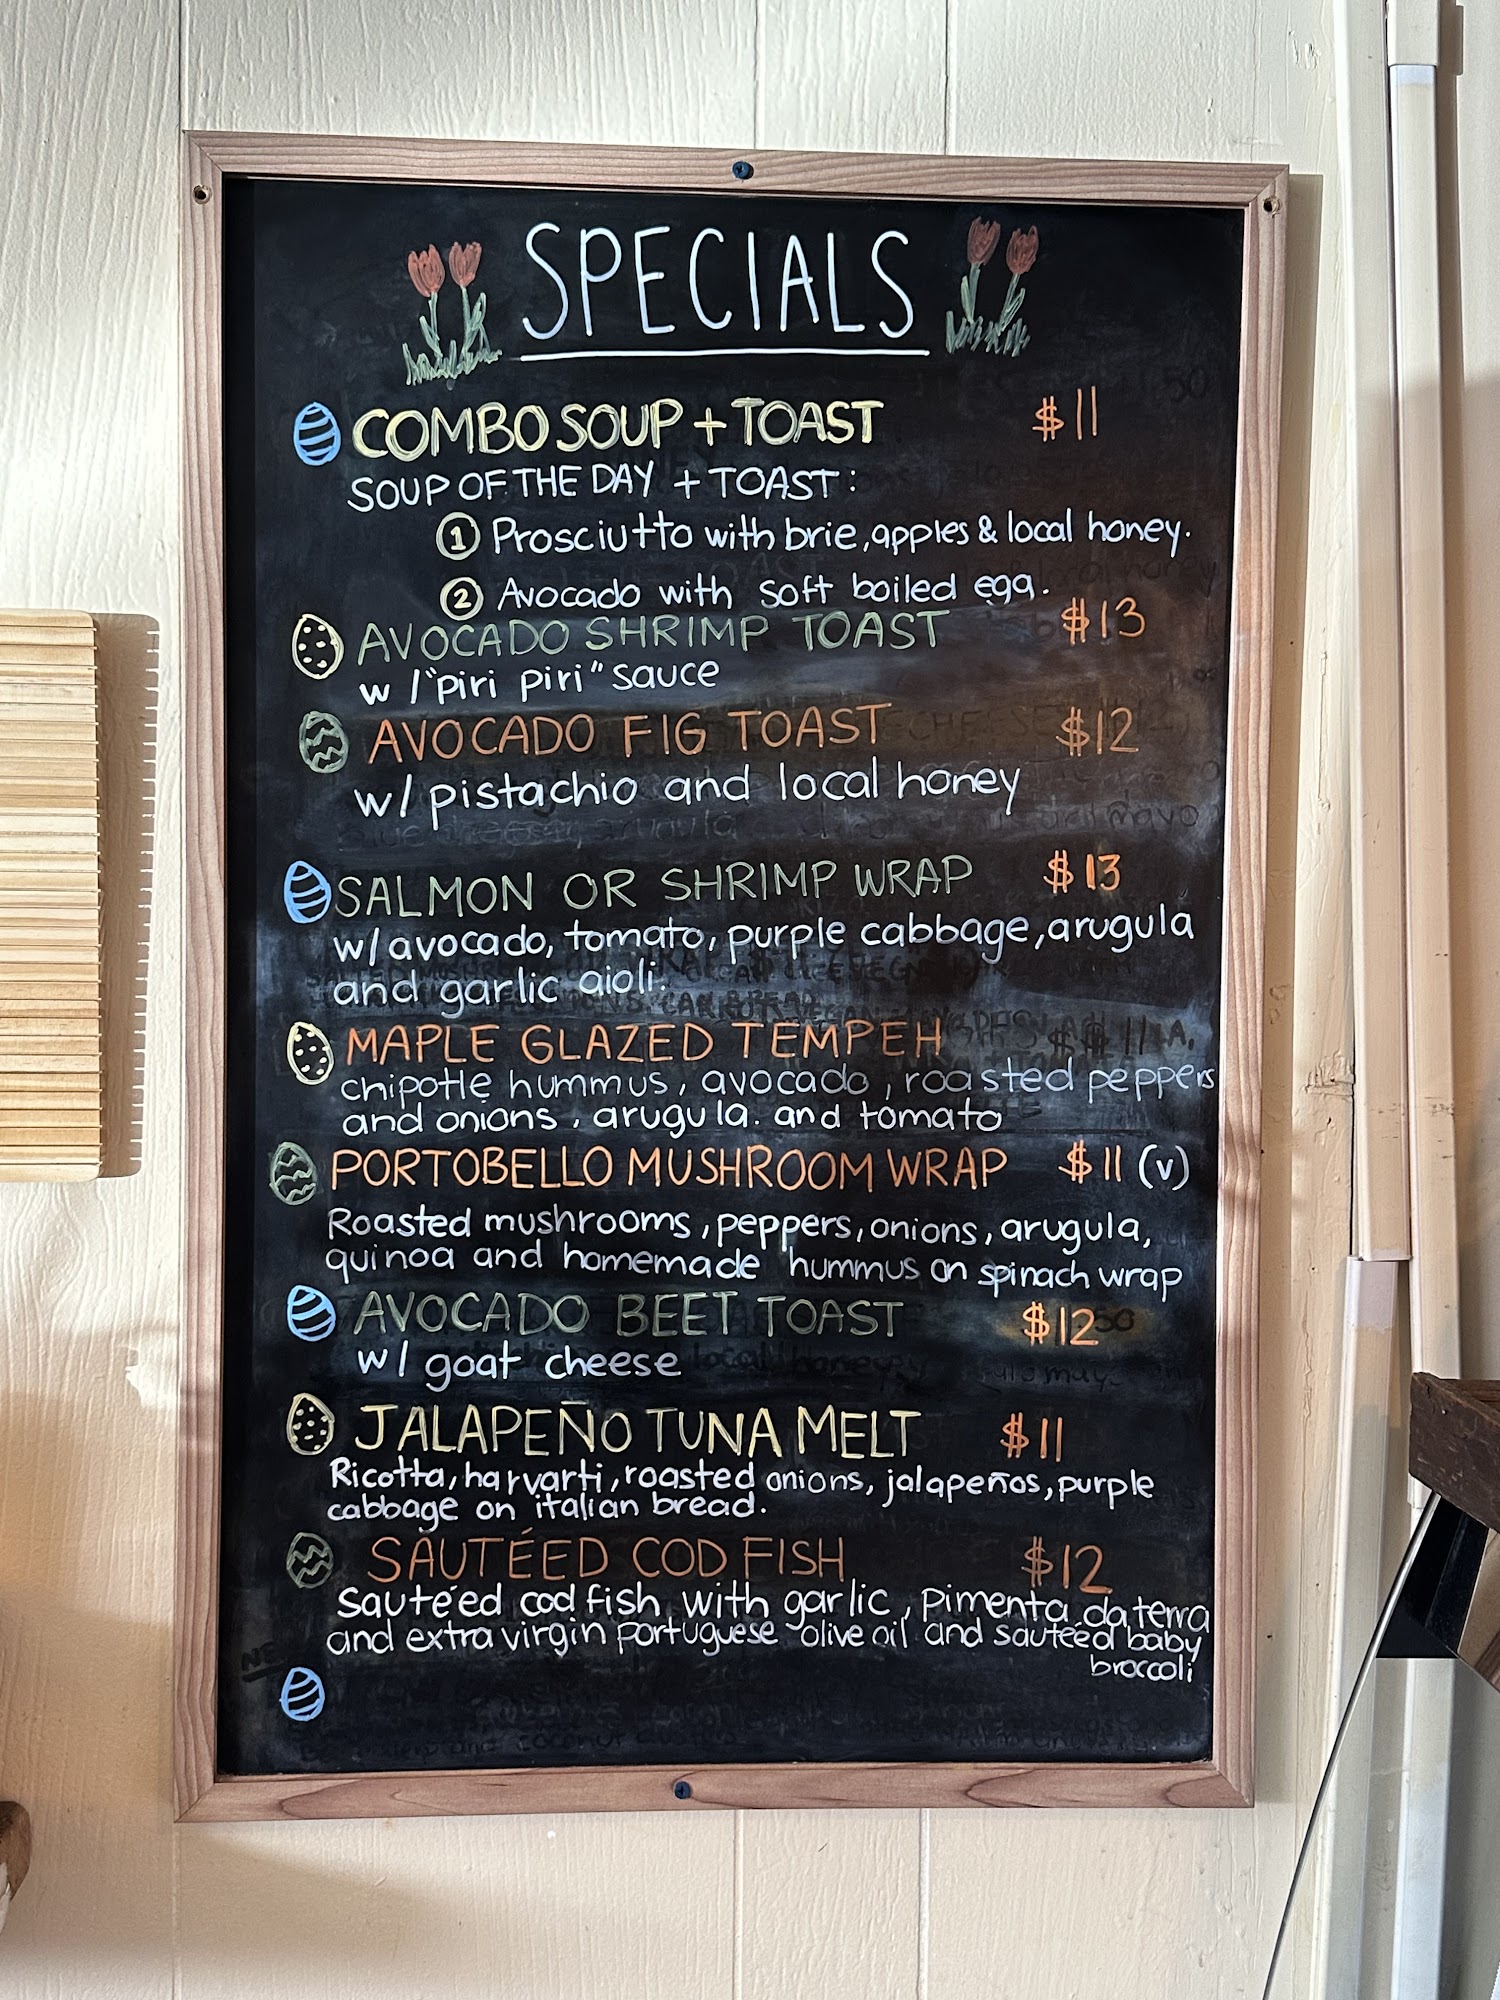 SPECIALS
COMBO SOUP + TOAST $11
SOUP OF THE DAY + TOAST:
1 Prosciutto with brie, apples & local honey.
2 Avocado with soft boiled egg.
AVOCADO SHRIMP TOAST $13
w/"piri piri" sauce
AVOCADO FIG TOAST $12
w/ pistachio and local honey
SALMON OR SHRIMP WRAP $13
w/ avocado, tomato, purple cabbage, arugula
and garlic aioli.
MAPLE GLAZED TEMPEH $11
chipotle hummus, avocado, roasted peppers
and onions, arugula. and tomato
PORTOBELLO MUSHROOM WRAP $11 (v)
Roasted mushrooms, peppers, onions, arugula,
quinoa and homemade hummus on spinach wrap
AVOCADO BEET TOAST $12
w/ goat cheese
JALAPEÑO TUNA MELT $11
Ricotta, harvarti, roasted onions, jalapeños, purple
cabbage on italian bread.
SAUTÉED COD FISH $12
Sautéed cod fish with garlic, pimenta da terra
and extra virgin portuguese olive oil and sautéed baby
broccoli